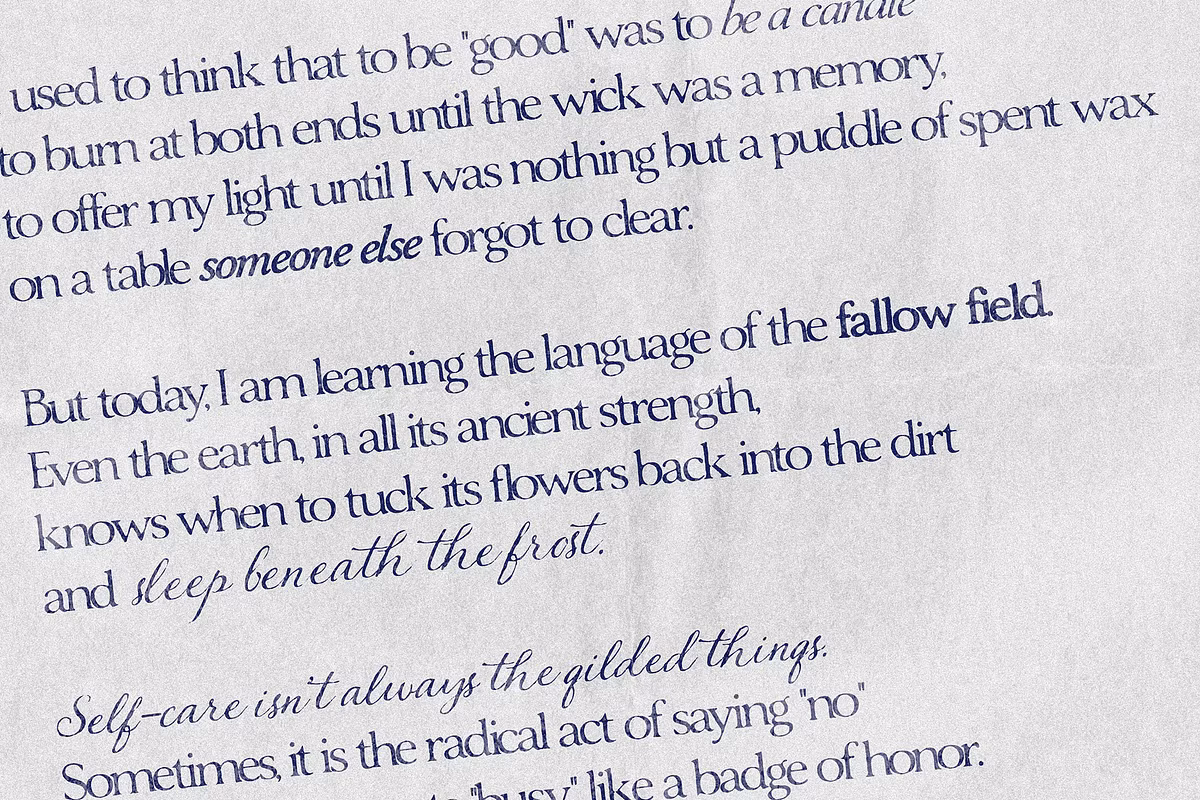 used to think that to be "good" was to be a candle
to burn at both ends until the wick was a memory,
to offer my light until I was nothing but a puddle of spent wax
on a table someone else forgot to clear.
But today, I am learning the language of the fallow field.
Even the earth, in all its ancient strength,
knows when to tuck its flowers back into the dirt
and sleep beneath the frost.
Self-care isn't always the gilded things.
Sometimes, it is the radical act of saying "no"
"busy" like a badge of honor.